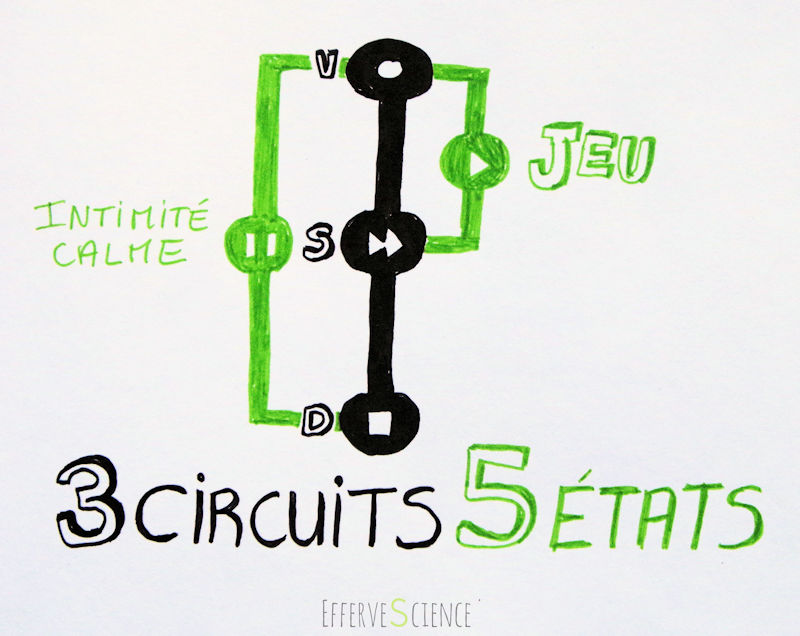 V
JEU
INTIMITÉ
CALME
S
D
3 CIRCUITS 5 ÉTATS
EFFERVESCIENCE